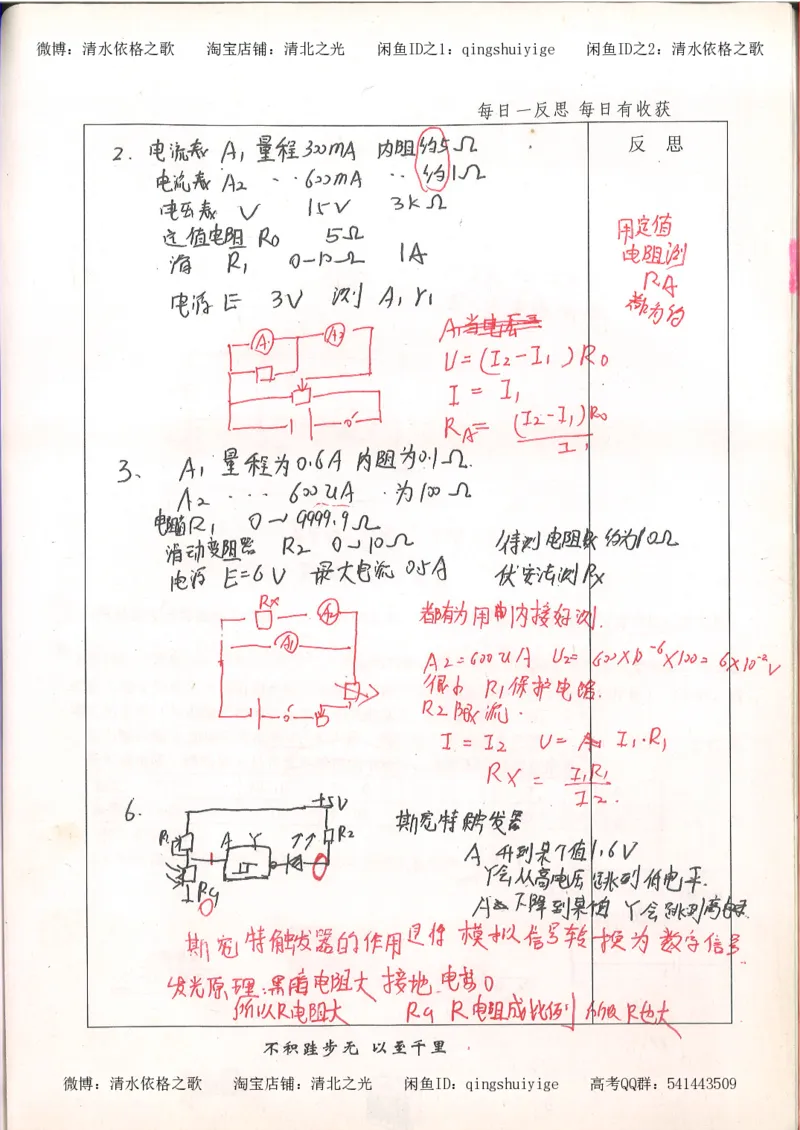 微博：清水依格之歌 淘宝店铺：清北之光 闲鱼ID之1：qingshuiyige 闲鱼ID之2：清水依格之歌
每日一反思 每日有收获
反 思
2. 电流表 A₁ 量程300mA 内阻约5Ω
电流表 A2 ‥ 600mA ‥ 约1Ω
电压表 V 15V 3KΩ
定值电阻 R₀ 5Ω
滑 R₁ 0-10Ω 1A
电源 E 3V 测 A₁ r₁
用定值
电阻测
RA
都为约
A₁ A2
U=(I2-I₁)R₀
I = I₁
RA= (I2-I₁)R₀
I₁
3、 A₁ 量程为0.6A 内阻为0.1Ω.
A2 ··· 600uA · 为100Ω
电阻箱R₁ 0→9999.9Ω
滑动变阻器 R2 0→10Ω 待测电阻 约为10Ω
电源 E=6V 最大电流0.5A 伏安法测Rx
Rx A2
A₁
都有为 用 内接好测.
A2=600uA U2= 600×10⁻⁶×100=6×10⁻²V
很小 R₁保护电路.
R2限流.
I=I2 U= I₁·R₁
RX = I₁R₁
I2.
6. +5V
R₁ A Y R2
RG
斯密特触发器
A 升到某个值1.6V
Y会从高电压跳到低电平.
A 下降到某值 Y会跳到高电平
斯密特触发器的作用是将 模拟信号转换为数字信号
发光原理:黑暗电阻大 接地 电势0
所以R电阻大 RG R电阻成比例 所以R也大
不积跬步无 以至千里
微博：清水依格之歌 淘宝店铺：清北之光 闲鱼ID：qingshuiyige 高考QQ群：541443509